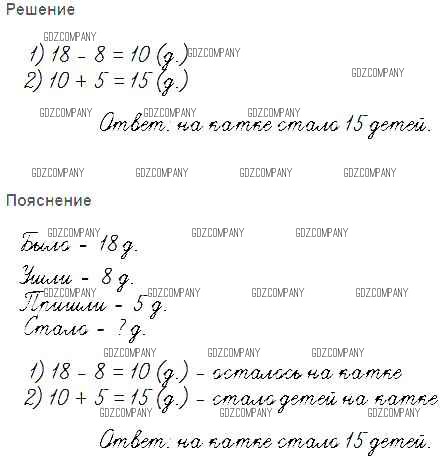 Решение
GDZCOMPANY
1) 18 - 8 = 10 (д.) GDZCOMPANY
GDZCOMPANY
2) 10 + 5 = 15 (д.)
GDZCOMPANY GDZCOMPANY GDZCOMPANY
Ответ: на катке стало 15 детей.
GDZCOMPANY GDZCOMPANY GDZCOMPANY GDZCOMPANY
Пояснение
GDZCOMPANY GDZCOMPANY GDZCOMPANY
Было - 18 д.
Ушли - 8 д.
GDZCOMPANY GDZCOMPANY GDZCOMPANY GDZCOMPANY
Пришли - 5 д.
Стало - ? д.
GDZCOMPANY GDZCOMPANY GDZCOMPANY
1) 18 - 8 = 10 (д.) - осталось на катке
2) 10 + 5 = 15 (д.) - стало детей на катке
GDZCOMPANY GDZCOMPANY GDZCOMPANY
Ответ: на катке стало 15 детей.